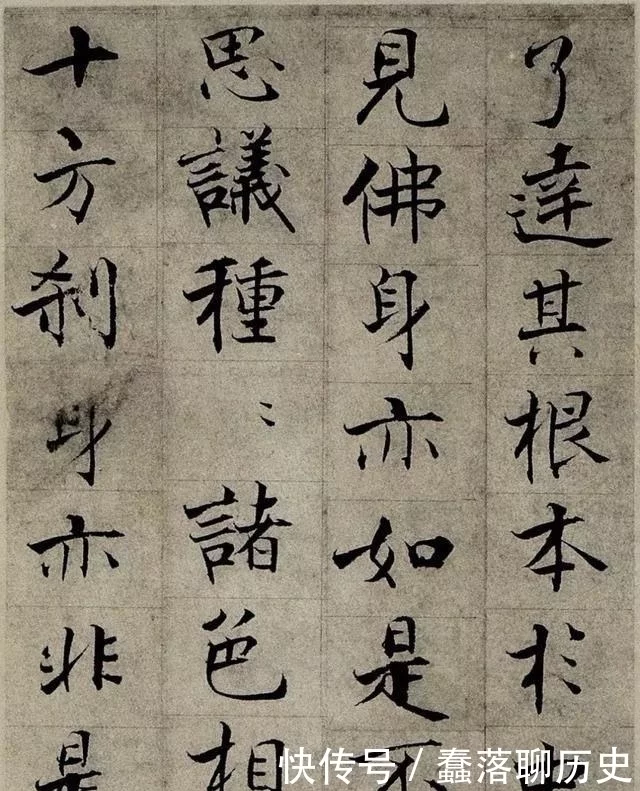 了達其根本於
見佛身亦如是不
思議種〻諸色相
十方刹身亦非是
快传号 / 蠢落聊历史